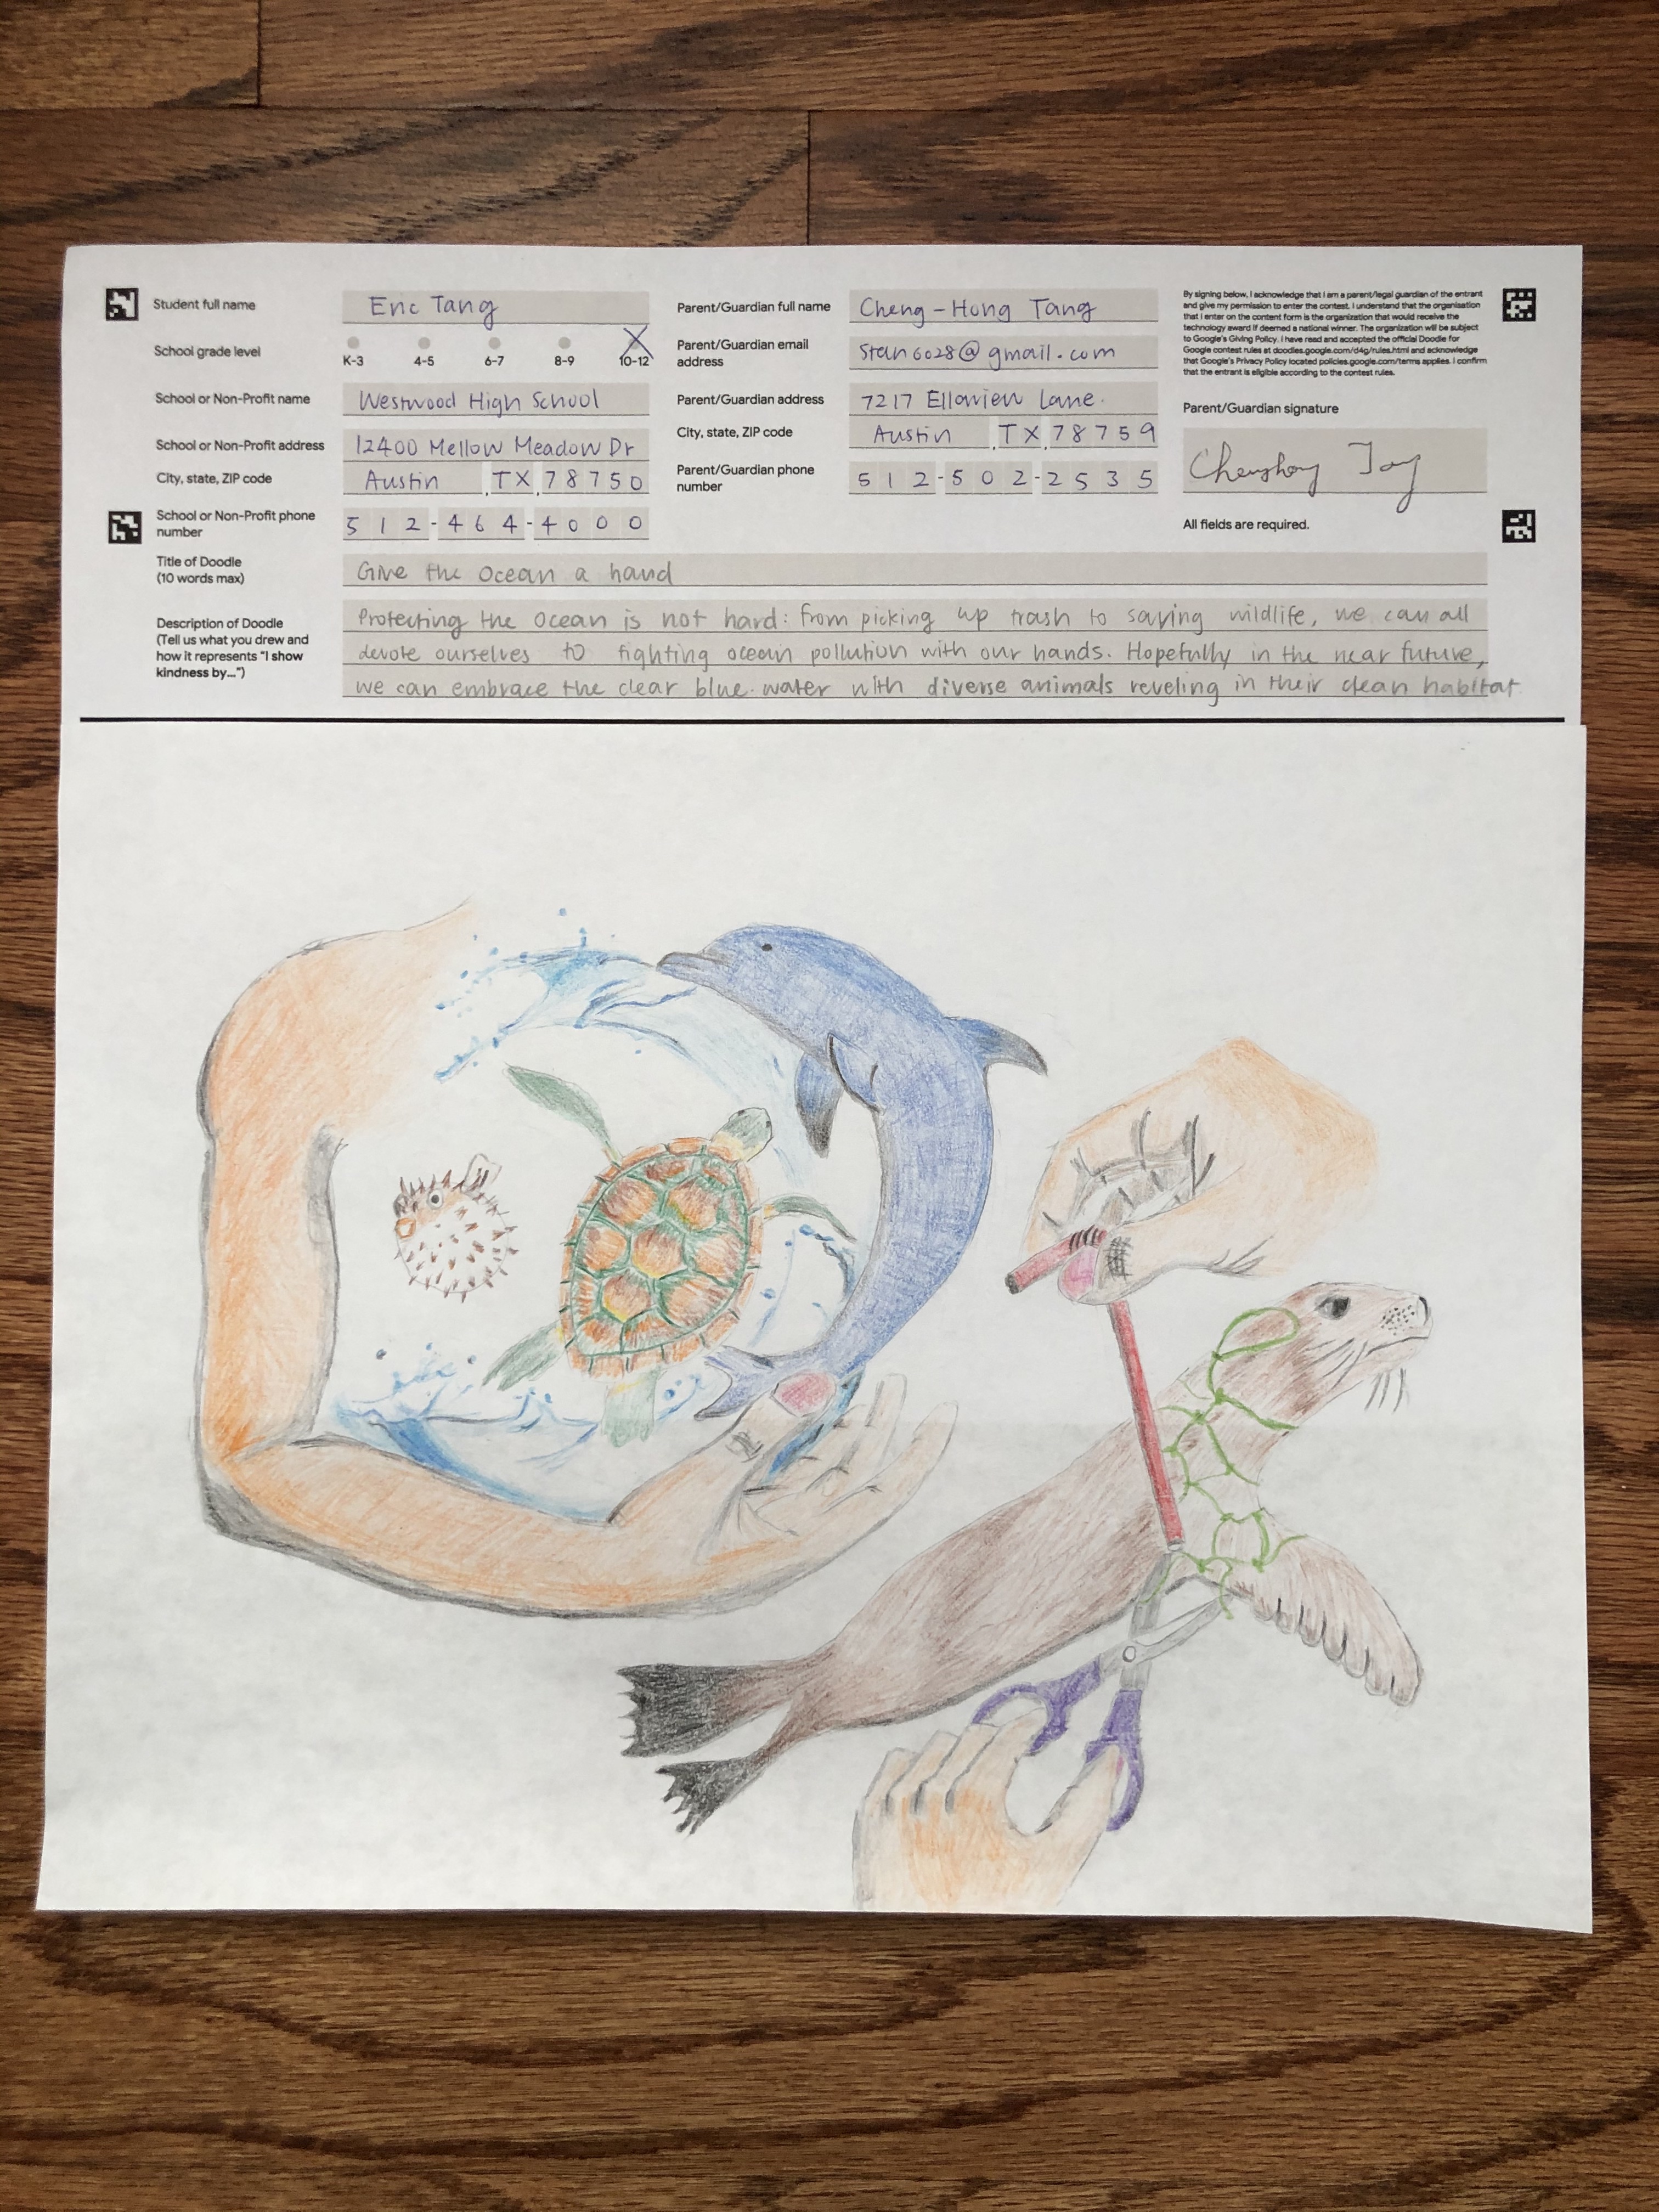 Student full name Eric Tang
School grade level K-3 4-5 6-7 8-9 10-12
School or Non-Profit name Westwood High School
School or Non-Profit address 12400 Mellow Meadow Dr
City, state, ZIP code Austin, TX, 78750
School or Non-Profit phone
number 512-464-4000
Parent/Guardian full name Cheng-Hong Tang
Parent/Guardian email
address stan6028@gmail.com
Parent/Guardian address 7217 Ellavien Lane.
City, state, ZIP code Austin, TX, 78759
Parent/Guardian phone
number 512-502-2535
By signing below, I acknowledge that I am a parent/legal guardian of the entrant
and give my permission to enter the contest. I understand that the organisation
that I enter on the content form is the organization that would receive the
technology award if deemed a national winner. The organization will be subject
to Google's Giving Policy. I have read and accepted the official Doodle for
Google contest rules at doodles.google.com/d4g/rules.html and acknowledge
that Google's Privacy Policy located policies.google.com/terms applies. I confirm
that the entrant is eligible according to the contest rules.
Parent/Guardian signature
All fields are required.
Title of Doodle
(10 words max) Give the Ocean a hand
Description of Doodle
(Tell us what you drew and
how it represents "I show
kindness by...")
Protecting the ocean is not hard: from picking up trash to saving wildlife, we can all
devote ourselves to fighting ocean pollution with our hands. Hopefully in the near future,
we can embrace the clear blue water with diverse animals reveling in their clean habitat